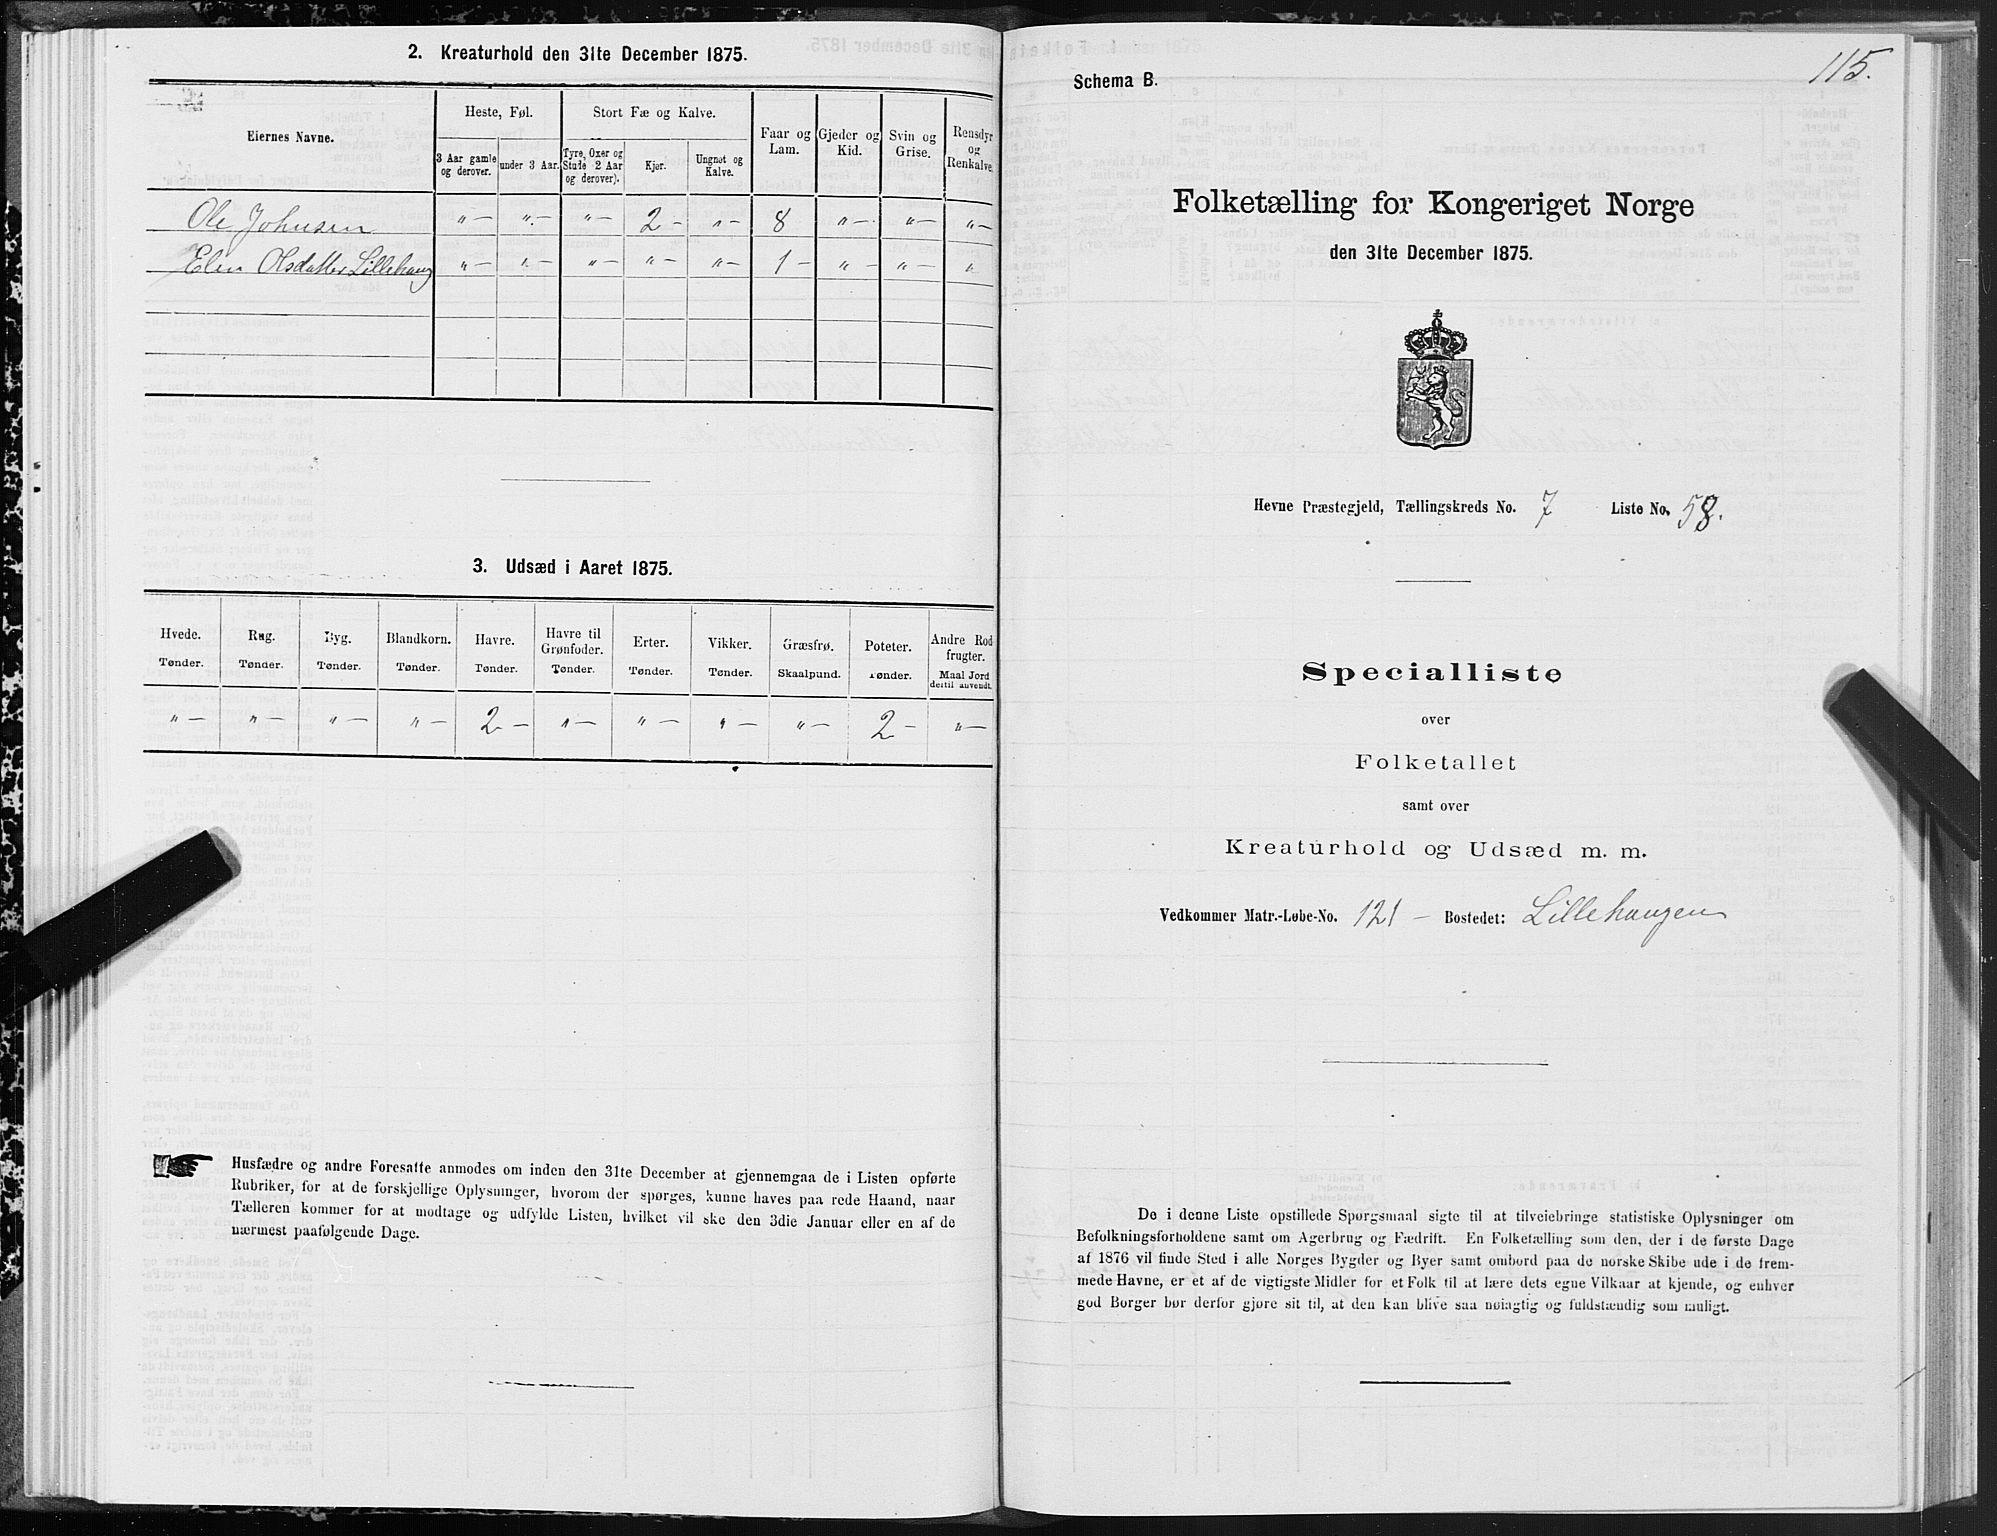 2. Kreaturhold den 31te December 1875.
Eiernes Navne.
Heste, Føl.
Stort Fæ og Kalve.
Faar og Lam.
Gjeder og Kid.
Svin og Grise.
Rensdyr og Renkalve.
3 Aar gamle og derover.
under 3 Aar.
Tyre, Oxer og Stude 2 Aar og derover).
Kjør.
Ungnøt og Kalve.
Ole Johnsen " — " — " — 2 — " — 8 " — " — " —
Elen Olsdatter Lillehaug " — " — " — " — " — 1 — " — " — "
3. Udsæd i Aaret 1875.
Hvede. Rug. Byg. Blandkorn. Havre. Havre til Grønfoder. Erter. Vikker. Græsfrø. Poteter. Andre Rodfrugter.
Tønder. Tønder. Tønder. Tønder. Tønder. Tønder. Tønder. Tønder. Skaalpund. Tønder. Maal Jord dertil anvendt.
" — " — " — " — 2 — " — " — " — " — 2 — " —
Husfædre og andre Foresatte anmodes om inden den 31te December at gjennemgaa de i Listen opførte
Rubriker, for at de forskjellige Oplysninger, hvorom der spørges, kunne haves paa rede Haand, naar
Tælleren kommer for at modtage og udfylde Listen, hvilket vil ske den 3die Januar eller en af de
nærmest paafølgende Dage.
115.
Schema B.
Folketælling for Kongeriget Norge
den 31te December 1875.
Hevne Præstegjeld, Tællingskreds No. 7 Liste No. 58.
Specialliste
over
Folketallet
samt over
Kreaturhold og Udsæd m. m.
Vedkommer Matr.-Løbe-No. 121 — Bostedet: Lillehaugen
De i denne Liste opstillede Spørgsmaal sigte til at tilveiebringe statistiske Oplysninger om
Befolkningsforholdene samt om Agerbrug og Fædrift. En Folketælling som den, der i de første Dage
af 1876 vil finde Sted i alle Norges Bygder og Byer samt ombord paa de norske Skibe ude i de frem-
mede Havne, er et af de vigtigste Midler for et Folk til at lære dets egne Vilkaar at kjende, og enhver
god Borger bør derfor gjøre sit til, at den kan blive saa nøiagtig og fuldstændig som muligt.